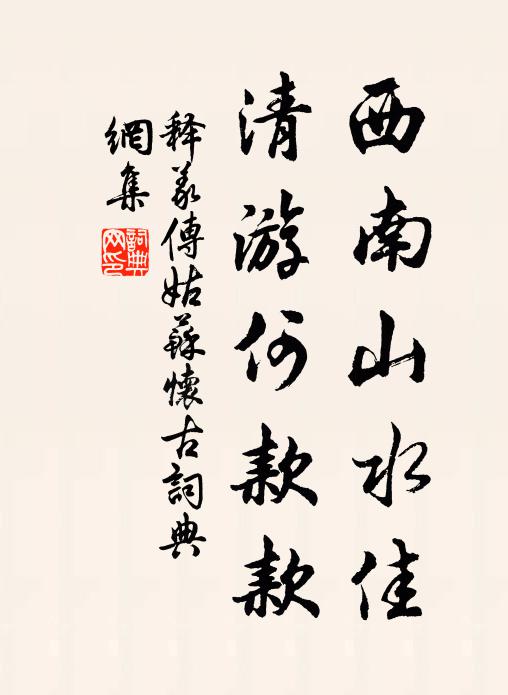 西南山水佳
清游何款款
释义傳姑蘇懷古詞典
網集
詞典
网印